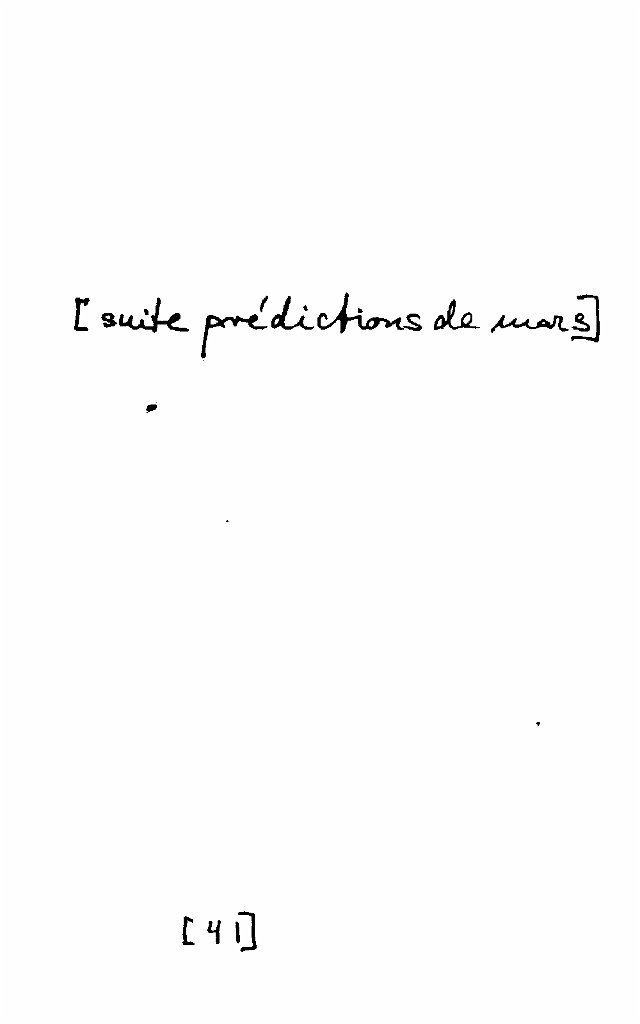 [suite prédictions de mars]
[41]